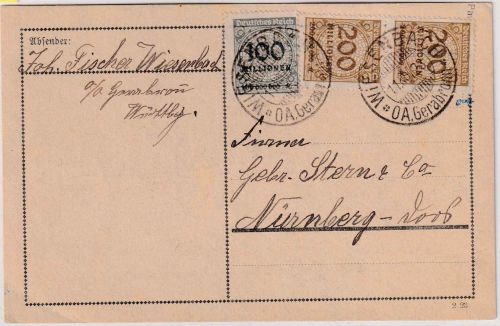 Absender:
Joh. Fischer Wiesenbach
o/a Gerabronn
Württbg.
Deutsches Reich
100
MILLIONEN
200
MILLIONEN
200
MILLIONEN
OA. Gerabr
OA. Gerabro
Firma
Gebr. Stern & Co
Nürnberg-Doos
2.23.